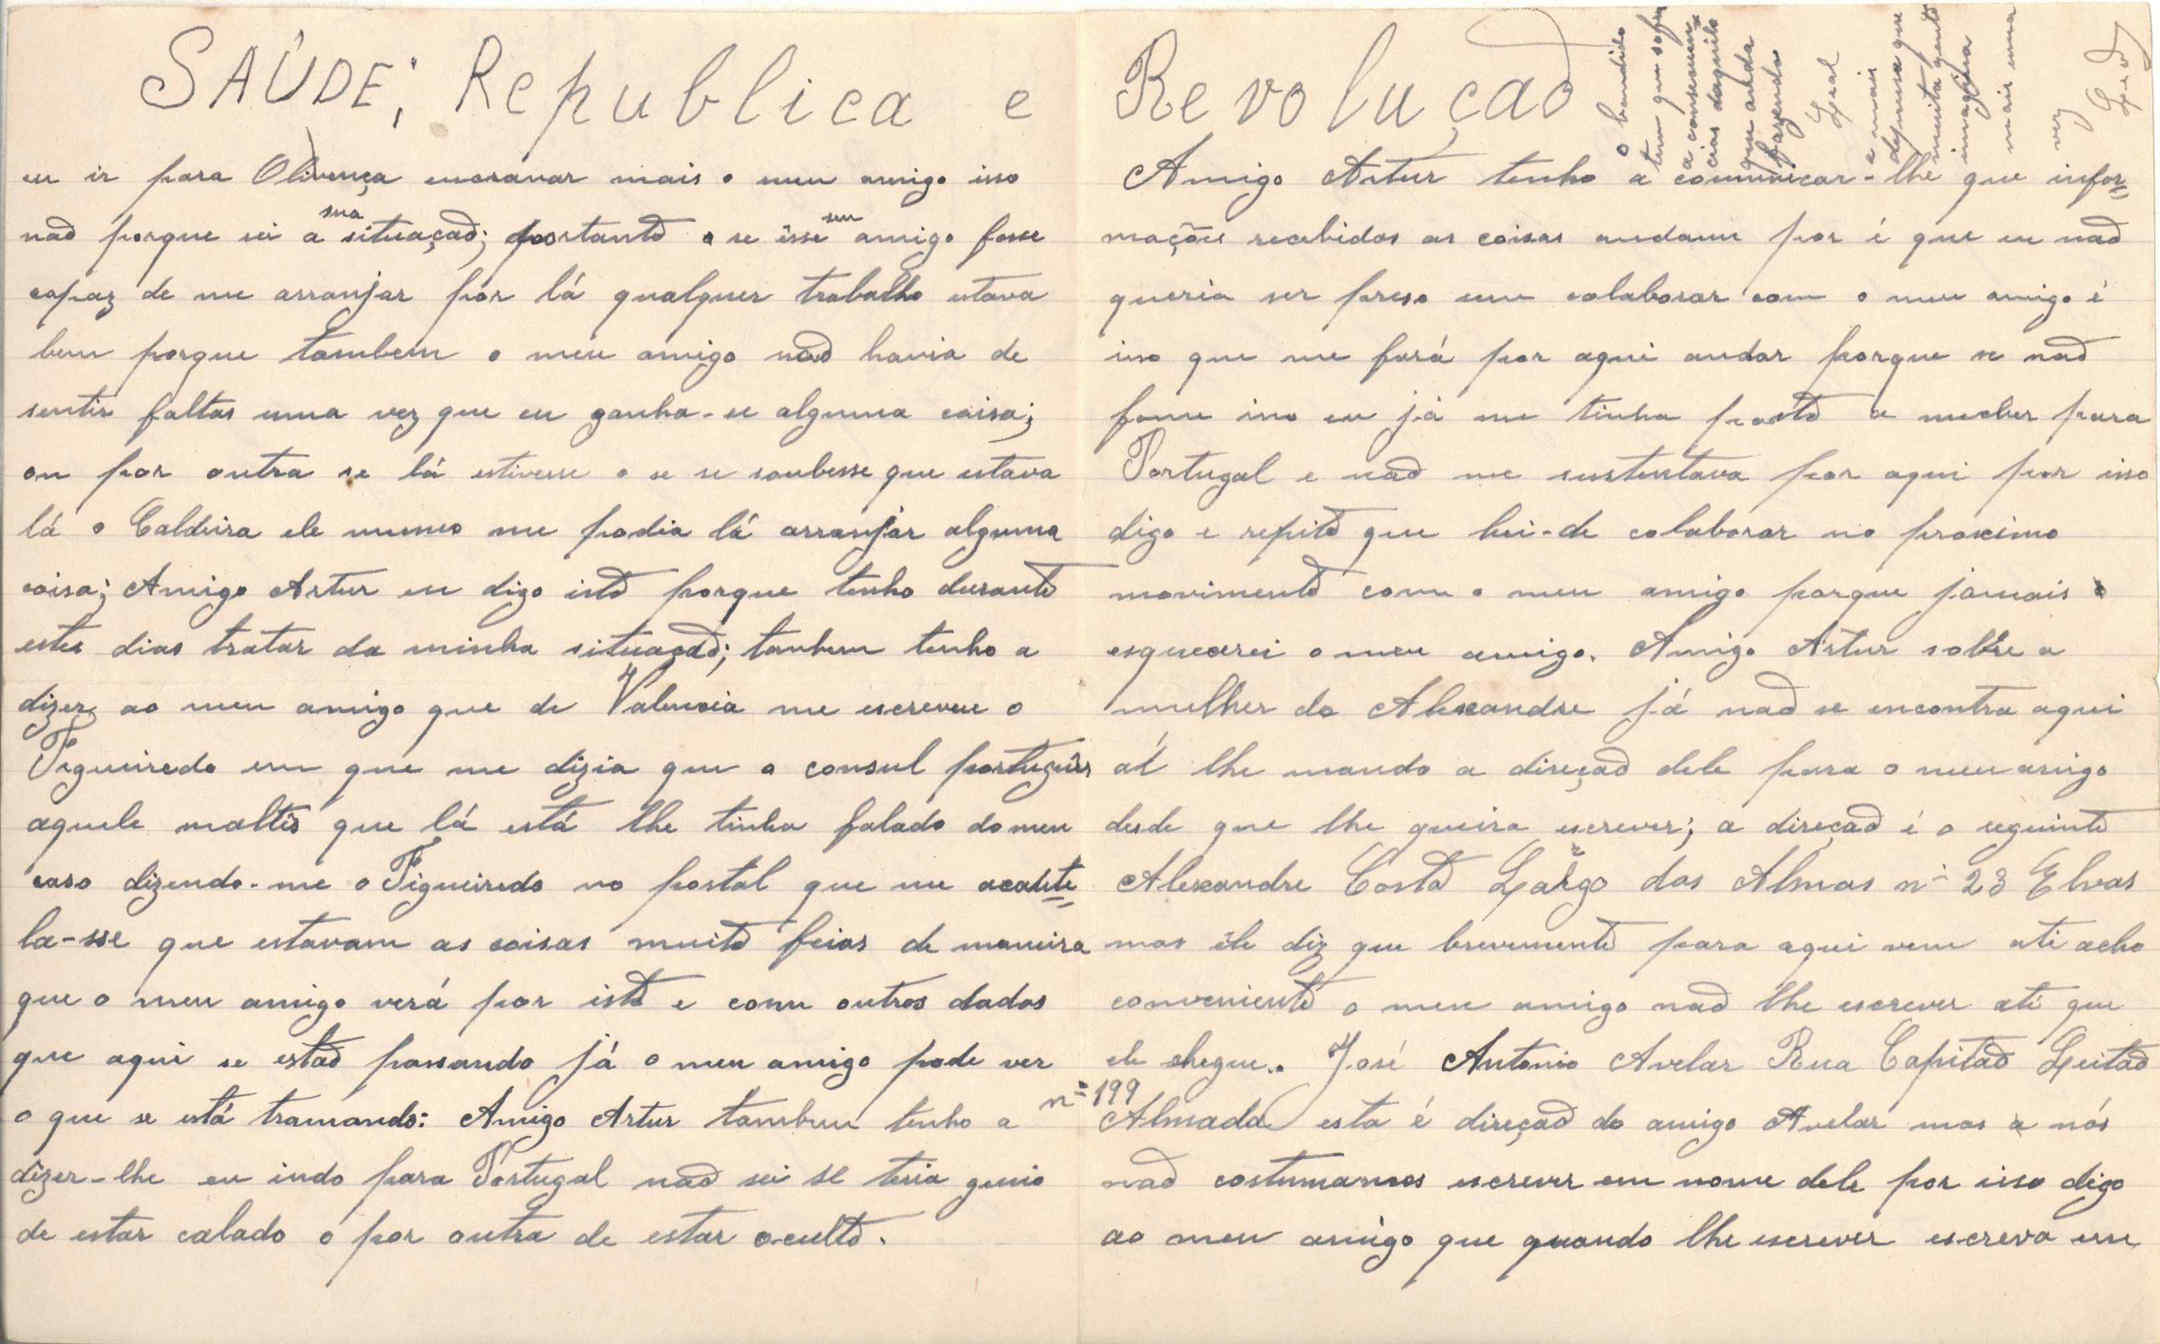 SAÚDE; Republica e Revolução
eu ir para Olivença encravar mais o meu amigo isso
não porque sei a sua situação; portanto o se êsse seu amigo fosse
capaz de me arranjar por lá qualquer trabalho estava
bem porque tambem o meu amigo não havia de
sentir faltas uma vez que eu ganha-se alguma coisa;
ou por outra se lá estivesse o se se soubesse que estava
lá o Caldeira ele mesmo me podia lá arranjar alguma
coisa; Amigo Artur eu digo isto porque tenho durante
estes dias tratar da minha situação; tambem tenho a
dizer ao meu amigo que de Valencia me escreveu o
Figueiredo em que me dizia que o consul português
aquele maltês que lá está lhe tinha falado do meu
caso dizendo-me o Figueiredo no postal que me acaute
la-sse que estavam as coisas muito feias de maneira
que o meu amigo verá por isto e com outros dados
que aqui se estão passando já o meu amigo pode ver
o que se está tramando: Amigo Artur tambem tenho a
dizer-lhe eu indo para Portugal não sei se teria genio
de estar calado o por outra de estar oculto.
Amigo Artur tenho a comunicar-lhe que infor=
mações recebidas as coisas andam por é que eu não
queria ser preso sem colaborar com o meu amigo é
isso que me fará por aqui andar porque se não
fosse isso eu já me tinha posto a mecher para
Portugal e não me sustentava por aqui por isso
digo e repito que hei-de colaborar no proximo
movimento com o meu amigo porque jamais
esquecerei o meu amigo. Amigo Artur sobre a
mulher do Alexandre já não se encontra aqui
at lhe mando a direção dele para o meu amigo
desde que lhe queira escrever; a direção é o seguinte
Alexandre Costa Largo das Almas nº 23 Elvas
mas êle diz que brevemente para aqui vem até acho
conveniente o meu amigo não lhe escrever até que
ele chegue. José Antonio Avelar Rua Capitão Leitão
nº 199
Almada esta é direção do amigo Avelar mas a nós
não costumamos escrever em nome dele por isso digo
ao meu amigo que quando lhe escrever escreva em
o bandido
tem que sofrer
a consequen=
cias daquilo
que anda
fazendo
Leal
e mais
do que
muita gente
imagina
mais uma
vez
Leal